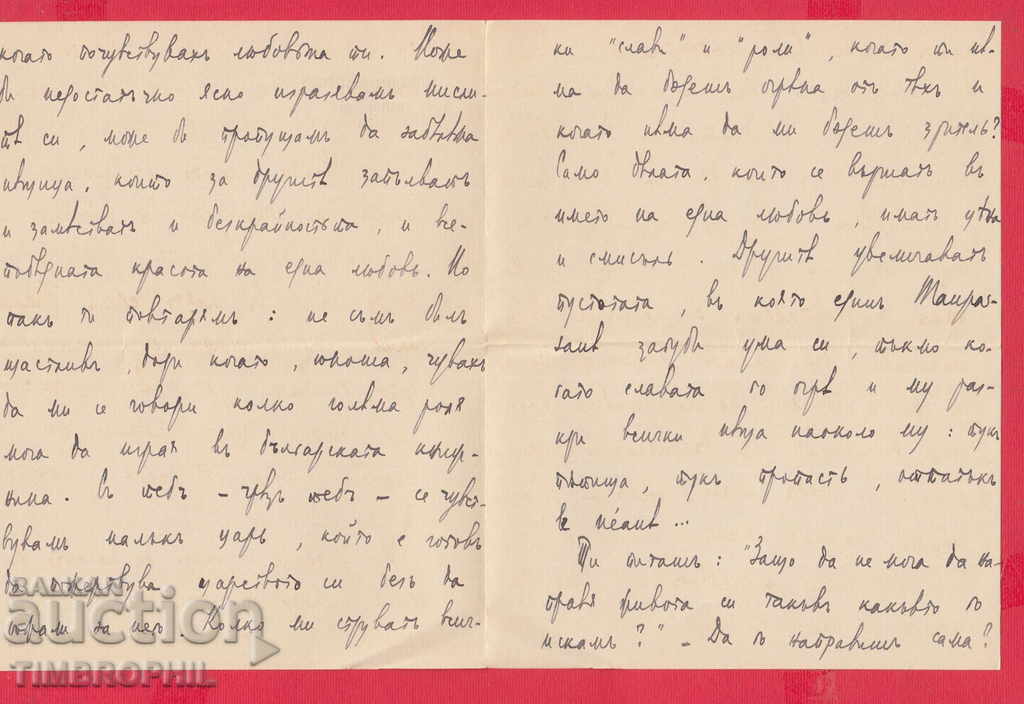 когато почувствувахъ любовьта ти. Може
би недостатъчно ясно изразявамъ мисли-
тѣ си, може би пропущамъ да забѣлѣжа
нѣщица, които за другитѣ запълватъ
и замѣстватъ и безкрайностьта, и все-
победната красота на една любовь. Но
пакъ ти повтарямъ: не съмъ билъ
щастливъ, дори когато, юноша, чувахъ
да ми се говори колко голѣма роля
мога да играя въ българската книж-
нина. Съ тебъ – чрезъ тебъ – се чувст-
вувамъ малъкъ царь, който е готовъ
да пожертвува царството си безъ да
трепне за него. Колко ми струватъ всич-
ки "слави" и "роли", когато ти нѣ-
ма да бѫдешъ огрѣна отъ тѣхъ и
когато нѣма да ми бѫдешъ зритель?
Само дѣлата, които се вършатъ въ
името на една любовь, иматъ цѣна
и смисълъ. Другитѣ увеличаватъ
пустотата, въ която единъ Maupas-
sant загуби ума си, тъкмо ко-
гато славата го огрѣ и му раз-
кри всички нѣща наоколо му: тукъ
пѫтища, тукъ пропасть, оттатъкъ
le néant ...
Ти питашъ: "Защо да не мога да на-
правя живота си такъвъ какъвто го
искамъ?" – Да го направишъ сама?
BALKAN
auction
TIMBROPHIL